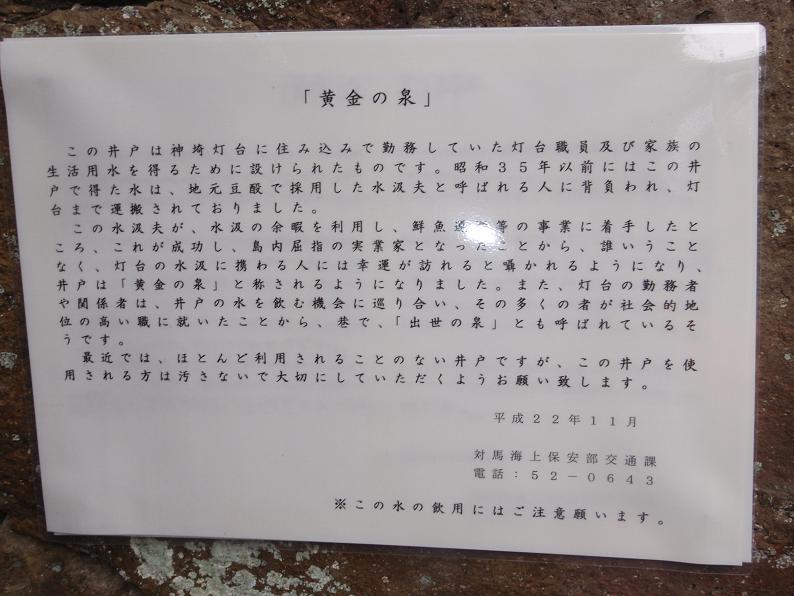 「黄金の泉」
この井戸は神埼灯台に住み込みで勤務していた灯台職員及び家族の
生活用水を得るために設けられたものです。昭和３５年以前にはこの井
戸で得た水は、地元豆酘で採用した水汲夫と呼ばれる人に背負われ、灯
台まで運搬されておりました。
この水汲夫が、水汲の余暇を利用し、鮮魚運等の事業に着手したと
ころ、これが成功し、島内屈指の実業家となったことから、誰いうこと
なく、灯台の水汲に携わる人には幸運が訪れると囁かれるようになり、
井戸は「黄金の泉」と称されるようになりました。また、灯台の勤務者
や関係者は、井戸の水を飲む機会に巡り合い、その多くの者が社会的地
位の高い職に就いたことから、巷で、「出世の泉」とも呼ばれているそ
うです。
最近では、ほとんど利用されることのない井戸ですが、この井戸を使
用される方は汚さないで大切にしていただくようお願い致します。
平成２２年１１月
対馬海上保安部交通課
電話：５２－０６４３
※この水の飲用にはご注意願います。